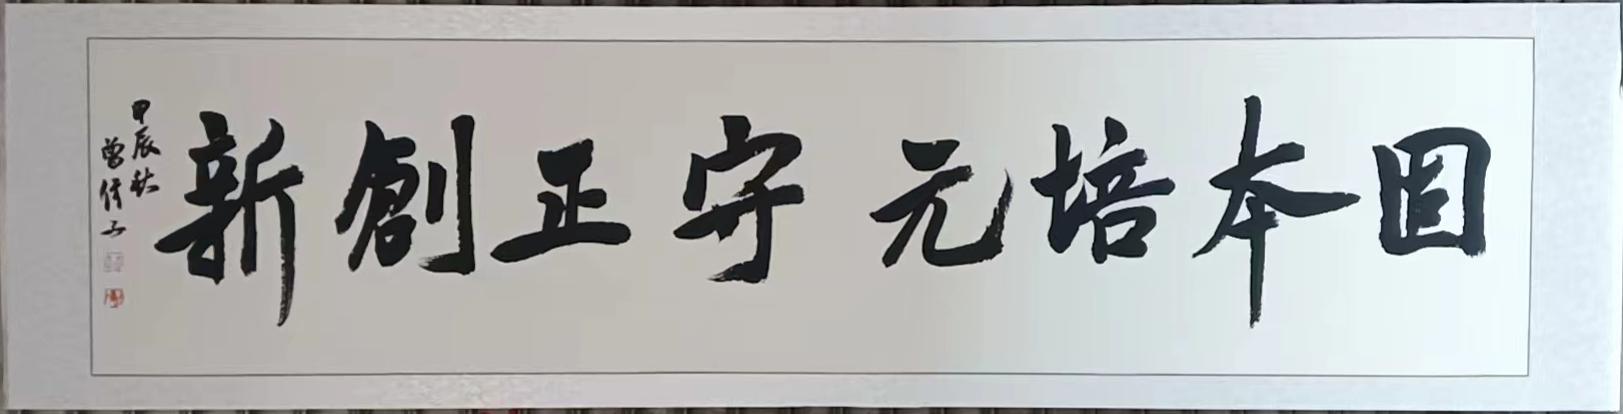 固本培元 守正創新
甲辰秋
曾